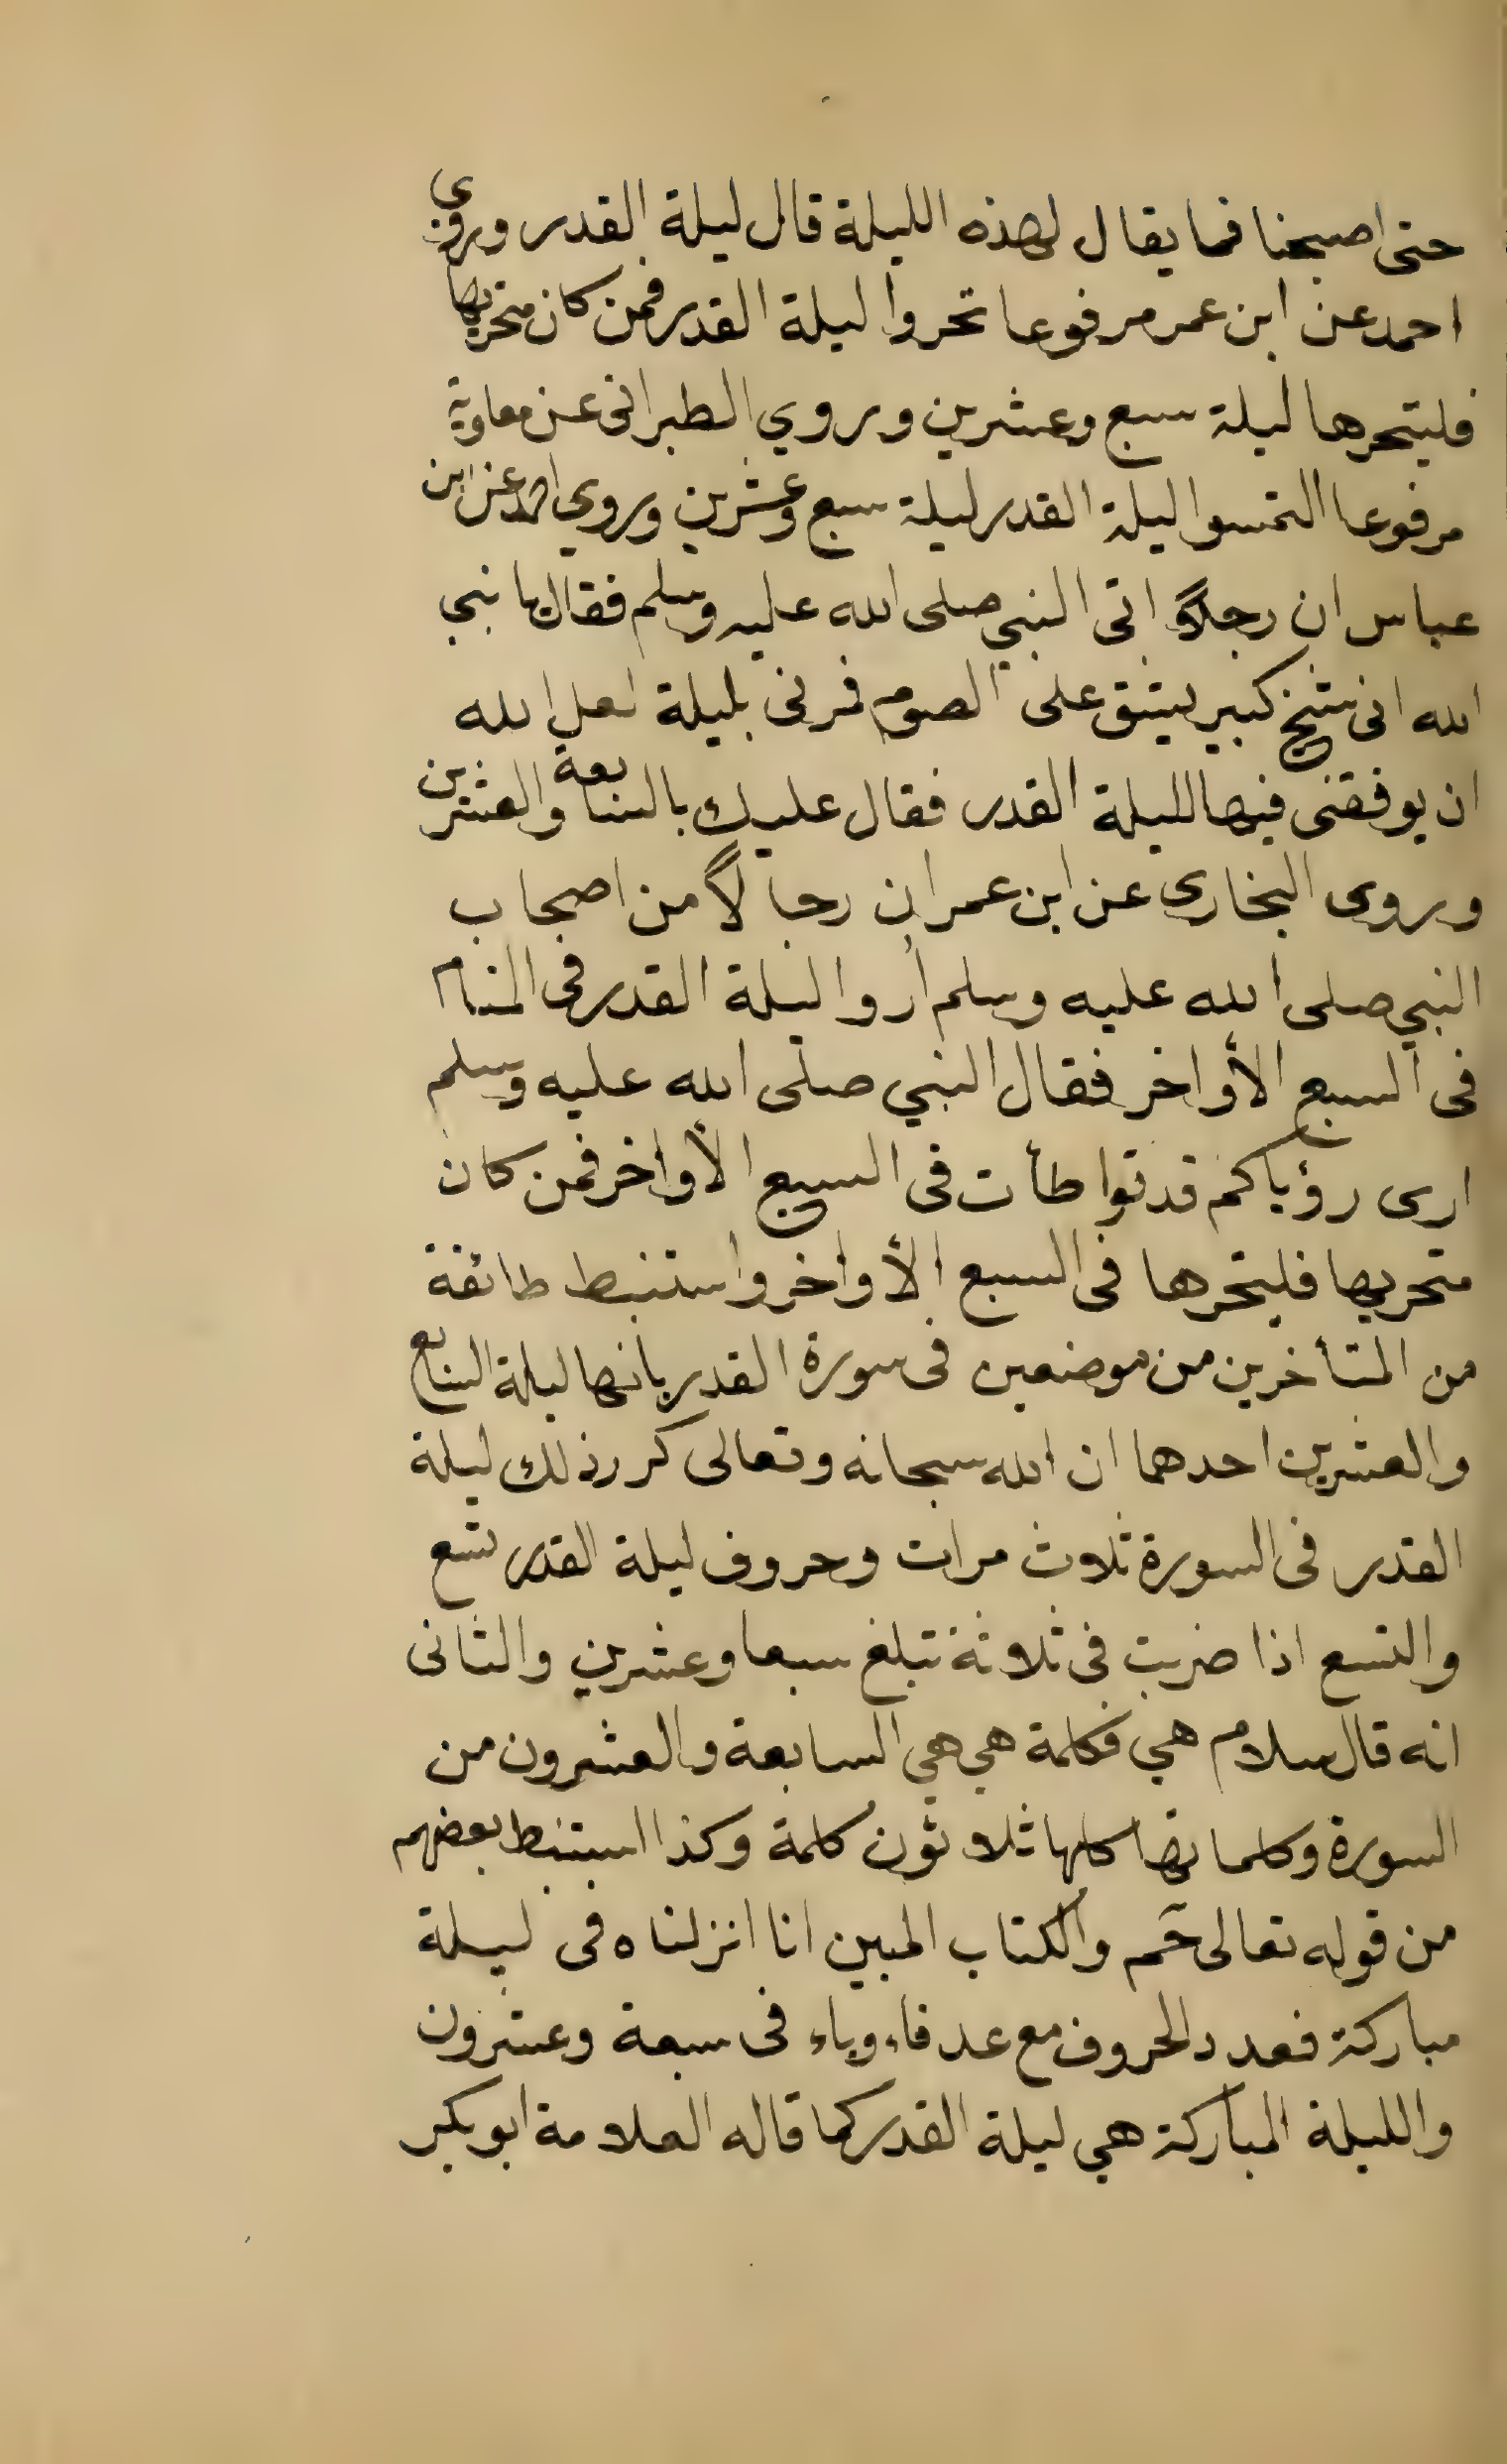 حتى اصبحنا فما يقال لهذه الليلة قال ليلة القدر وروي
احمد عن ابن عمر مرفوعا تحروا ليلة القدر فمن كان متحريها
فليتحرها ليلة سبع وعشرين وروي الطبرانى عن معاوية
مرفوعا التمسوا ليلة القدر ليلة سبع وعشرين وروي احمد عن ابن
عباس ان رجلاً اتى النبي صلى الله عليه وسلم فقال يا نبي
الله انى شيخ كبير يشق على الصوم فمرنى بليلة لعل الله
ان يوفقنى فيها لليلة القدر فقال عليك بالسابعة والعشرين
وروى البخارى عن ابن عمر ان رجالاً من اصحاب
النبي صلى الله عليه وسلم أُروا ليلة القدر فى المنام
فى السبع الأواخر فقال النبي صلى الله عليه وسلم
ارى رؤياكم قد تواطأت فى السبع الأواخر فمن كان
متحريها فليتحرها فى السبع الأواخر واستنبط طائفة
من المتأخرين من موضعين فى سورة القدر بانها ليلة السابع
والعشرين احدهما ان الله سبحانه وتعالى كرر ذلك ليلة
القدر فى السورة ثلاث مرات وحروف ليلة القدر تسع
والتسع اذا ضربت فى ثلاثة تبلغ سبعا وعشرين والثانى
انه قال سلام هي فكلمة هي هي السابعة والعشرون من
السورة وكلماتها كلها ثلاثون كلمة وكذا استنبط بعضهم
من قوله تعالى حٓم والكتاب المبين انا انزلناه فى ليلة
مباركة فعدد الحروف مع عد فاء وياء فى سبعة وعشرون
والليلة المباركة هي ليلة القدر كما قاله العلامة ابو بكر